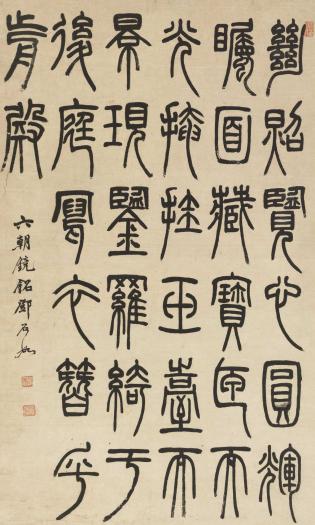 𢇍照覽心圓輝
矚面藏寶匣而
光掩挂玉臺而
景現鑒羅綺于
後庭寫衣簪乎
前殿
六朝鏡銘鄧石如